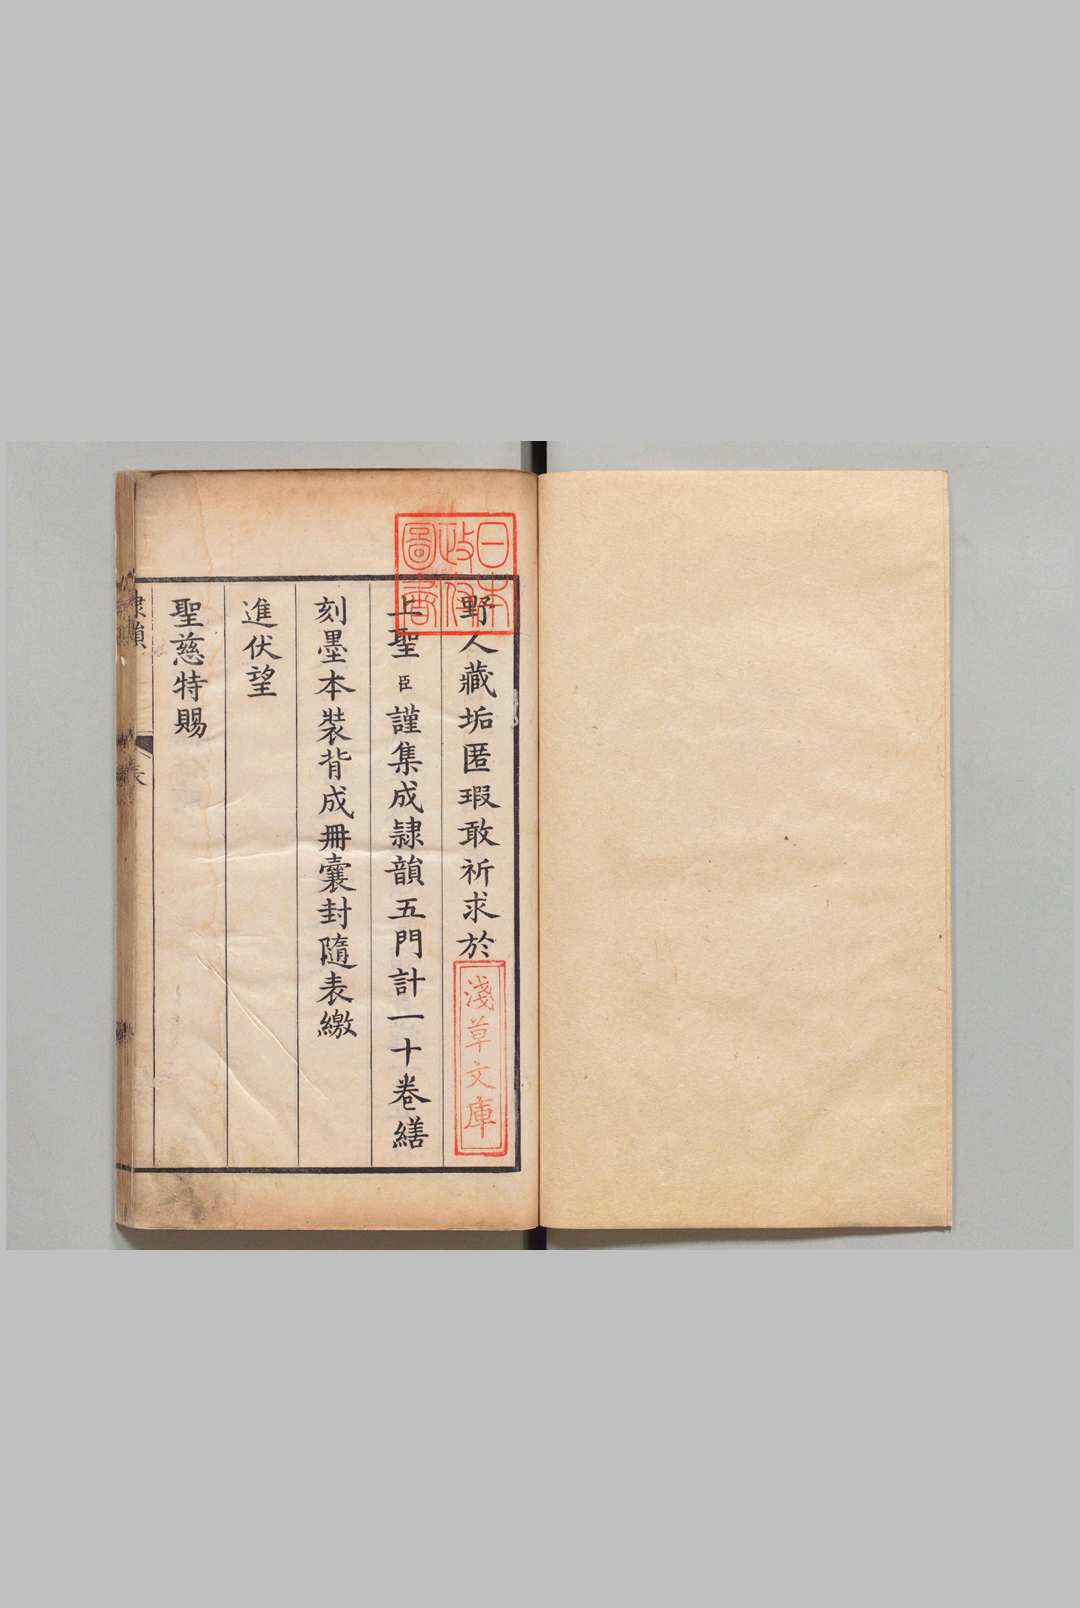 野人藏垢匿瑕敢祈求於
上聖臣謹集成隷韻五門計一十卷繕
刻墨本裝背成冊囊封隨表繳
進伏望
聖慈特賜
隷韻
表
日本
政府
圖書
淺草文庫